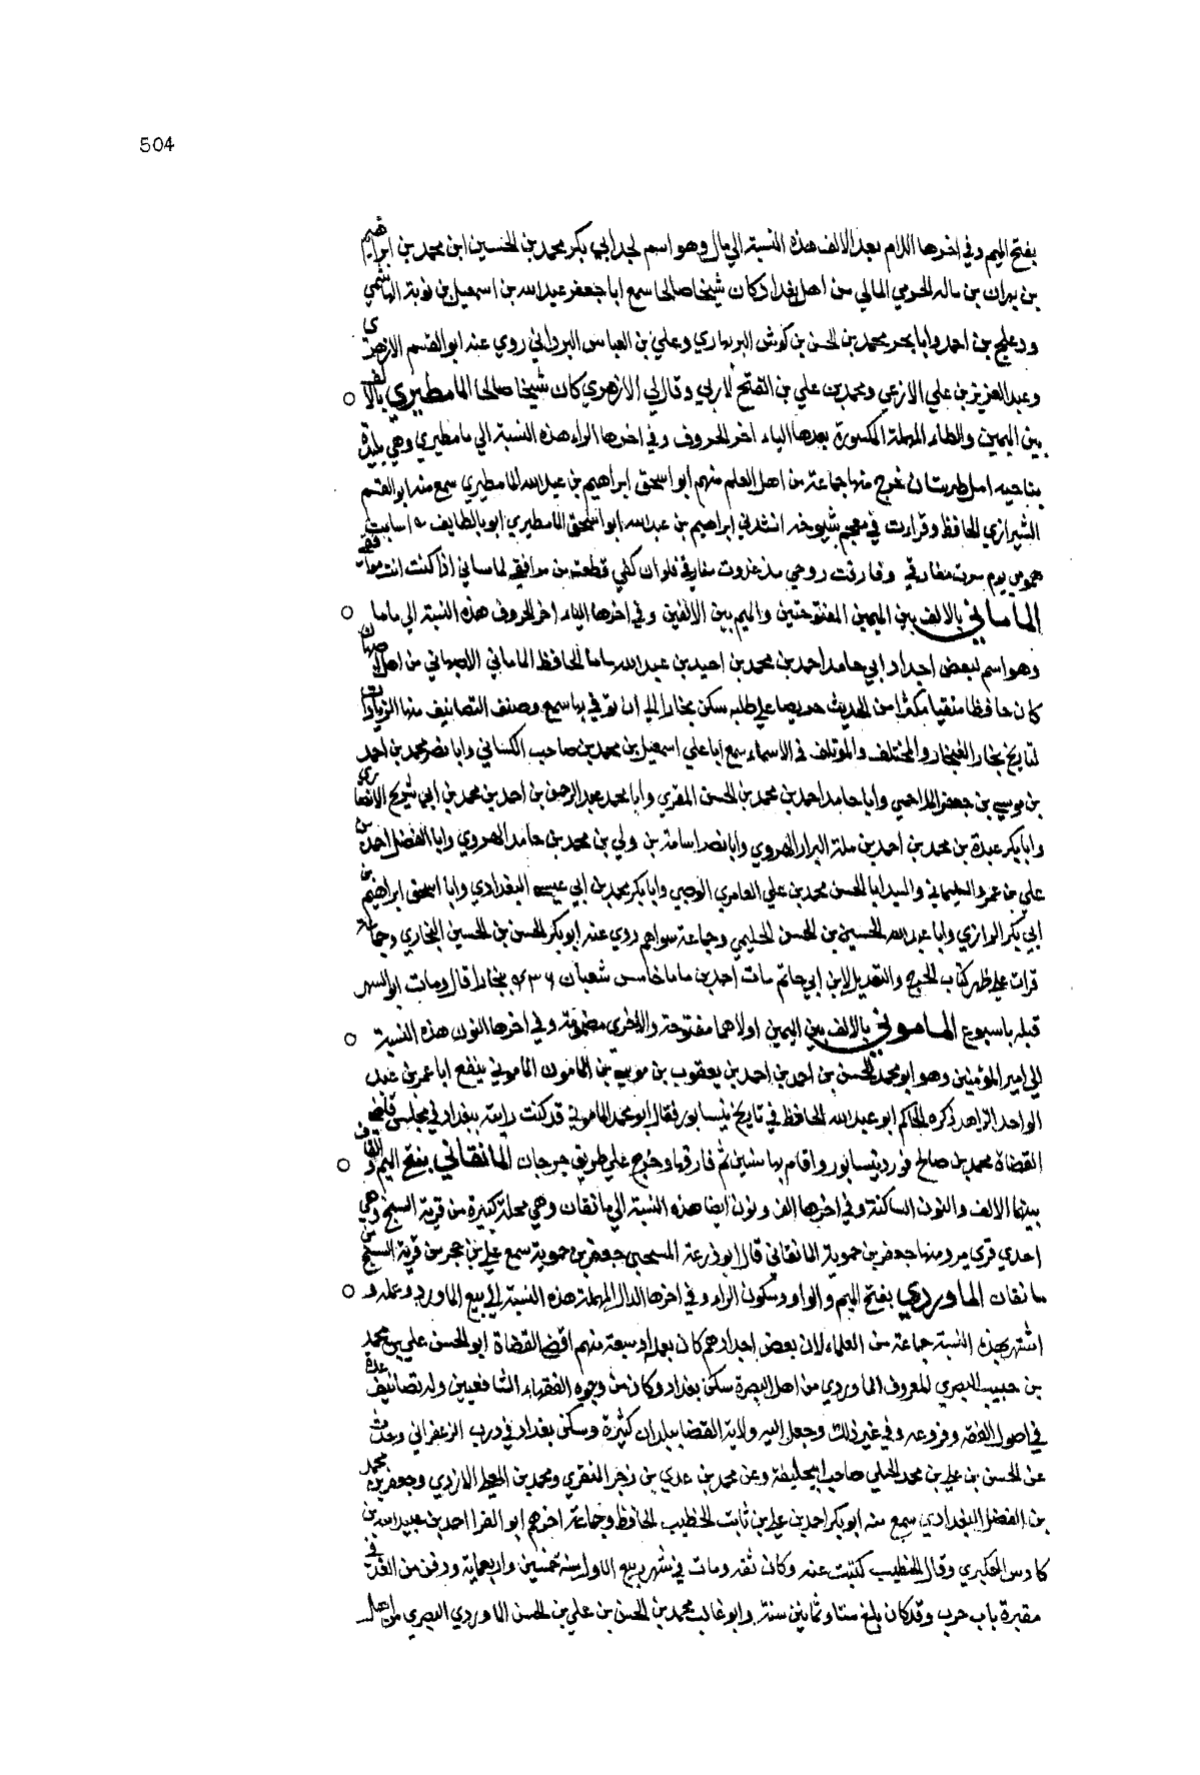 504
بفتح الميم وفي اخرها اللام بعد الالف هذه النسبة الي مال وهو اسم لجد ابي بكر محمد بن الحسين ابن محمد بن ابراهيم
بن مهران بن ماله الحرمي المالي من اهل بغداد كان شيخا صالحا سمع ابا جعفر عبد الله بن اسمعيل بن توبة الهاشمي
ودعلج بن احمد وابا بحر محمد بن الحسن بن كوثر البربهاري وعلي بن العباس البرداني روي عنه ابو القسم الازهري
وعبد العزيز بن علي الازجي ومحمد بن علي بن الفتح وقال لي الازهري كان شيخا صالحا المامطيري بالالف
بين الميمين والطاء المهملة المكسورة بعدها الياء اخر الحروف وفي اخرها الراء هذه النسبة الي مامطيري وهي بليدة
بناحية امل طبرستان خرج منها جماعة من اهل العلم منهم ابو اسحق ابراهيم بن عبد الله المامطيري سمع منه ابو القسم
الشيرازي الحافظ وقرات في معجم شيوخه انشدني ابراهيم بن عبد الله ابو اسحق المامطيري ابو بالطايف
يوم سرت مفارقي وفارقت روحي مذ غدوت مفارقي فلو ان كفي قطعة من مرافقي لما ساني اذا كنت انت
الماماني بالالف بين الميمين المفتوحتين والميم بين الالفين وفي اخرها الياء اخر الحروف هذه النسبة الي ماما
وهو اسم لبعض اجداد ابي حامد احمد بن محمد بن احيد بن عبد الله بن ماما الحافظ الماماني الاصبهاني من اهل اصبهان
كان حافظا متقيا مكثرا من الحديث حريصا علي طلبه سكن بخارا الي ان توفي بها سمع وصنف التصانيف منها الزيادات
لتاريخ بخارا لغنجار والمختلف والموتلف في الاسماء سمع ابا علي اسمعيل بن محمد بن صاحب الكشاني وابا نصر محمد بن احمد
بن موسي بن جعفر الملاحمي وابا حامد احمد بن محمد بن الحسن المقري وابا محمد عبد الرحمن بن احمد بن محمد بن ابي شريح الانصاري
وابا بكر عبدة بن محمد بن احمد بن ملة البزار الهروي وابا نصر اسامة بن ولي بن محمد بن حامد الهروي وابا الفضل احمد بن
علي بن عمرو السليماني والسيد ابا الحسن محمد بن علي العامري الوصي وابا بكر محمد بن ابي عيسي البغدادي وابا اسحق ابراهيم بن
ابي بكر الرازي وابا عبد الله الحسين بن الحسن الحليمي وجماعة سواهم روي عنه ابو بكر الحسن بن الحسين البخاري وجماعة
قرات علي ظهر كتاب الجرح والتعديل لابن ابي حاتم مات احمد بن ماما خامس شعبان ٤٣٦ بخارا قال ومات ابو اليسر
قبله باسبوع الماموني بالالف بين الميمين اولاهما مفتوحة والاخري مضمومة وفي اخرها النون هذه النسبة
الي امير المؤمنين وهو ابو محمد الحسن بن احمد بن احمد بن يعقوب بن موسي بن المامون الماموني ابا عمر بن عبد
الواحد الزاهد ذكره الحاكم ابو عبد الله الحافظ في تاريخ نيسابور فقال ابو محمد الماموني قد كنت رايته ببغداد في مجلس قاضي
القضاة محمد بن صالح فورد نيسابور واقام بها سنين ثم فارقها وخرج علي طريق جرجان المانقاني بفتح الميم والقاف
بينهما الالف والنون الساكنة وفي اخرها الف ونون ايضا هذه النسبة الي مانقان وهي محلة كبيرة من قرية السنج وهي
احدي قري مرو منها جعفر بن حموية المانقاني قال ابو زرعة السنجي جعفر بن حموية سمع علي بن حجر من قرية السنج من
مانقان الماوردي بفتح الميم والواو وسكون الراء وفي اخرها الدال المهملة هذه النسبة الي بيع الماورد وعمله و
اشتهر بهذه النسبة جماعة من العلماء لان بعض اجدادهم كان يعمله او يبيعه منهم اقضي القضاة ابو الحسن علي بن محمد
بن حبيب البصري المعروف الماوردي من اهل البصرة سكن بغداد وكان من وجوه الفقهاء الشافعيين وله تصانيف عدة
في اصول الفقه وفروعه وفي غير ذلك وجعل اليه ولاية القضا ببلدان كثيرة وسكن بغداد في درب الزعفراني وحدث
عن الحسن بن علي بن محمد الجبلي صاحب ابي خليفة وعن محمد بن عدي بن زحر المنقري ومحمد بن المعلي الازدي وجعفر بن محمد
بن الفضل البغدادي سمع منه ابو بكر احمد بن علي بن ثابت الخطيب الحافظ وجماعة اخرهم ابو العز احمد بن عبيد الله بن
كادس العكبري وقال الخطيب كتبت عنه وكان ثقة ومات في شهر ربيع الاول سنة خمسين واربعماية ودفن من الغد في
مقبرة باب حرب وقد كان بلغ ستا وثمانين سنة وابو غالب محمد بن الحسن بن علي بن الحسن الماوردي البصري من اهل